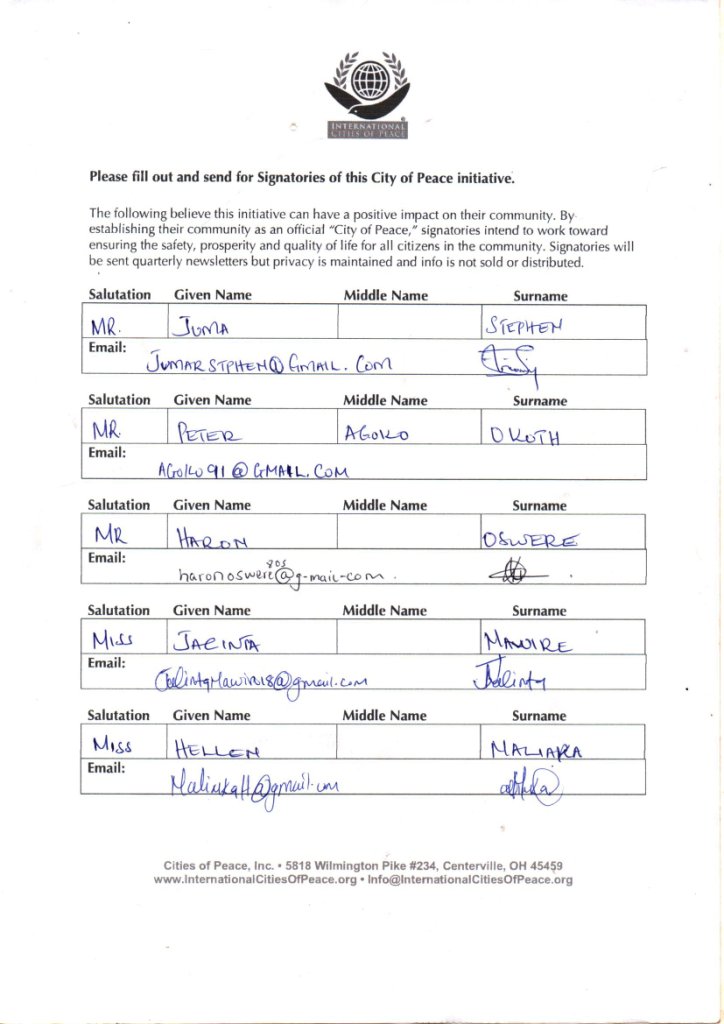 INTERNATIONAL
CITIES OF PEACE
Please fill out and send for Signatories of this City of Peace initiative.
The following believe this initiative can have a positive impact on their community. By
establishing their community as an official "City of Peace," signatories intend to work toward
ensuring the safety, prosperity and quality of life for all citizens in the community. Signatories will
be sent quarterly newsletters but privacy is maintained and info is not sold or distributed.
Salutation Given Name Middle Name Surname
MR. JUMA STEPHEN
Email:
JUMARSTPHEN@GMAIL.COM
Salutation Given Name Middle Name Surname
MR. PETER AGOKO OKOTH
Email:
AGOKO91@GMAIL.COM
Salutation Given Name Middle Name Surname
MR HARON OSWERE
Email:
haronoswere803@g-mail-com.
Salutation Given Name Middle Name Surname
MISS JACINTA MAWIRE
Email:
Salutation Given Name Middle Name Surname
MISS HELLEN
Email:
Cities of Peace, Inc. • 5818 Wilmington Pike #234, Centerville, OH 45459
www.InternationalCitiesOfPeace.org • Info@InternationalCitiesOfPeace.org